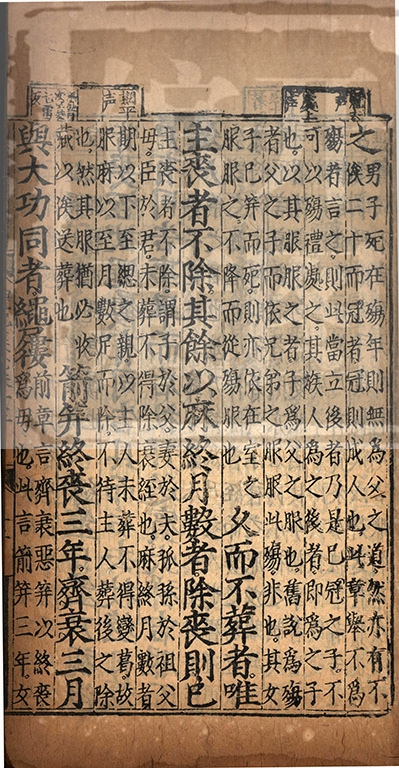 之男子死在殤年則無為父之道然亦有不
俟二十而冠者冠則成人也此章舉不為
殤者言之則此當立後者乃是已冠之子不
可以殤禮處之其族人為之後者即為之子
也以其服服之者子為父之服也舊説為殤
者父之子而依兄弟之服服此殤非也其女
子已笄而死則亦依在室之
服服之不降而從殤服也
久而不葬者唯
主喪者不除其餘以麻終月數者除喪則已
主喪者不除謂子於父妻於夫孤孫於祖父
母臣於君未葬不得除衰絰也麻終月數者
期以下至緦之親以主人未葬不得變葛故
服麻以至月數足而除不待主人葬後之除
也然其服猶必收
藏以俟送葬也
箭笄終喪三年齊衰三月
與大功同者繩屨
前章言齊衰惡笄以終喪
為母也此言箭笄三年女